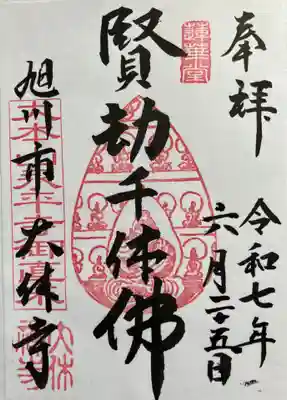 奉拝
令和七年
六月二十五日
蓮華堂
賢劫千体佛
旭川市大休寺